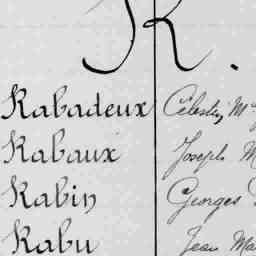 K.
Kabadeux Célestin M
Kabaux Joseph M
Kabin Georges
Kabu Jean Ma